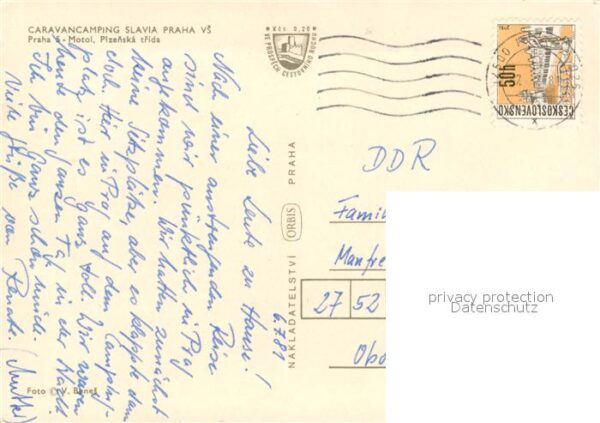 CARAVANCAMPING SLAVIA PRAHA VŠ
Praha 5 - Motol, Plzeňská třída
Kčs 0,20
VE PROSPĚCH CESTOVNÍHO RUCHU
50h
ČESKOSLOVENSKO
6.7.81
Liebe Leute zu Hause!
Nach einer anstrengenden Reise
sind wir pünktlich in Prag
angekommen. Wir hatten zunächst
keine Sitzplätze, aber es klappte dann
doch. Hier in Prag auf dem Camping-
platz ist es ganz toll. Wir waren
heute den ganzen Tag in der Stadt.
Ich bin ganz schön müde.
Viele Grüße von Renate.
(Mutti)
Foto © V. Beneš
NAKLADATELSTVÍ ORBIS PRAHA
DDR
Famil
Manfre
27 52
Obo
privacy protection
Datenschutz